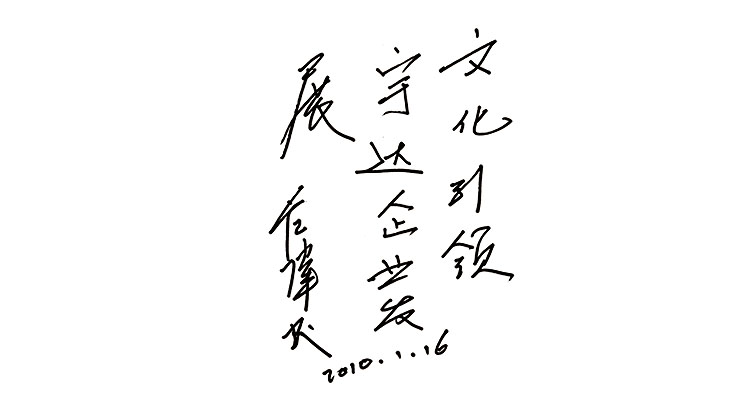 文化引领
宇达企业发
展
2010.1.16